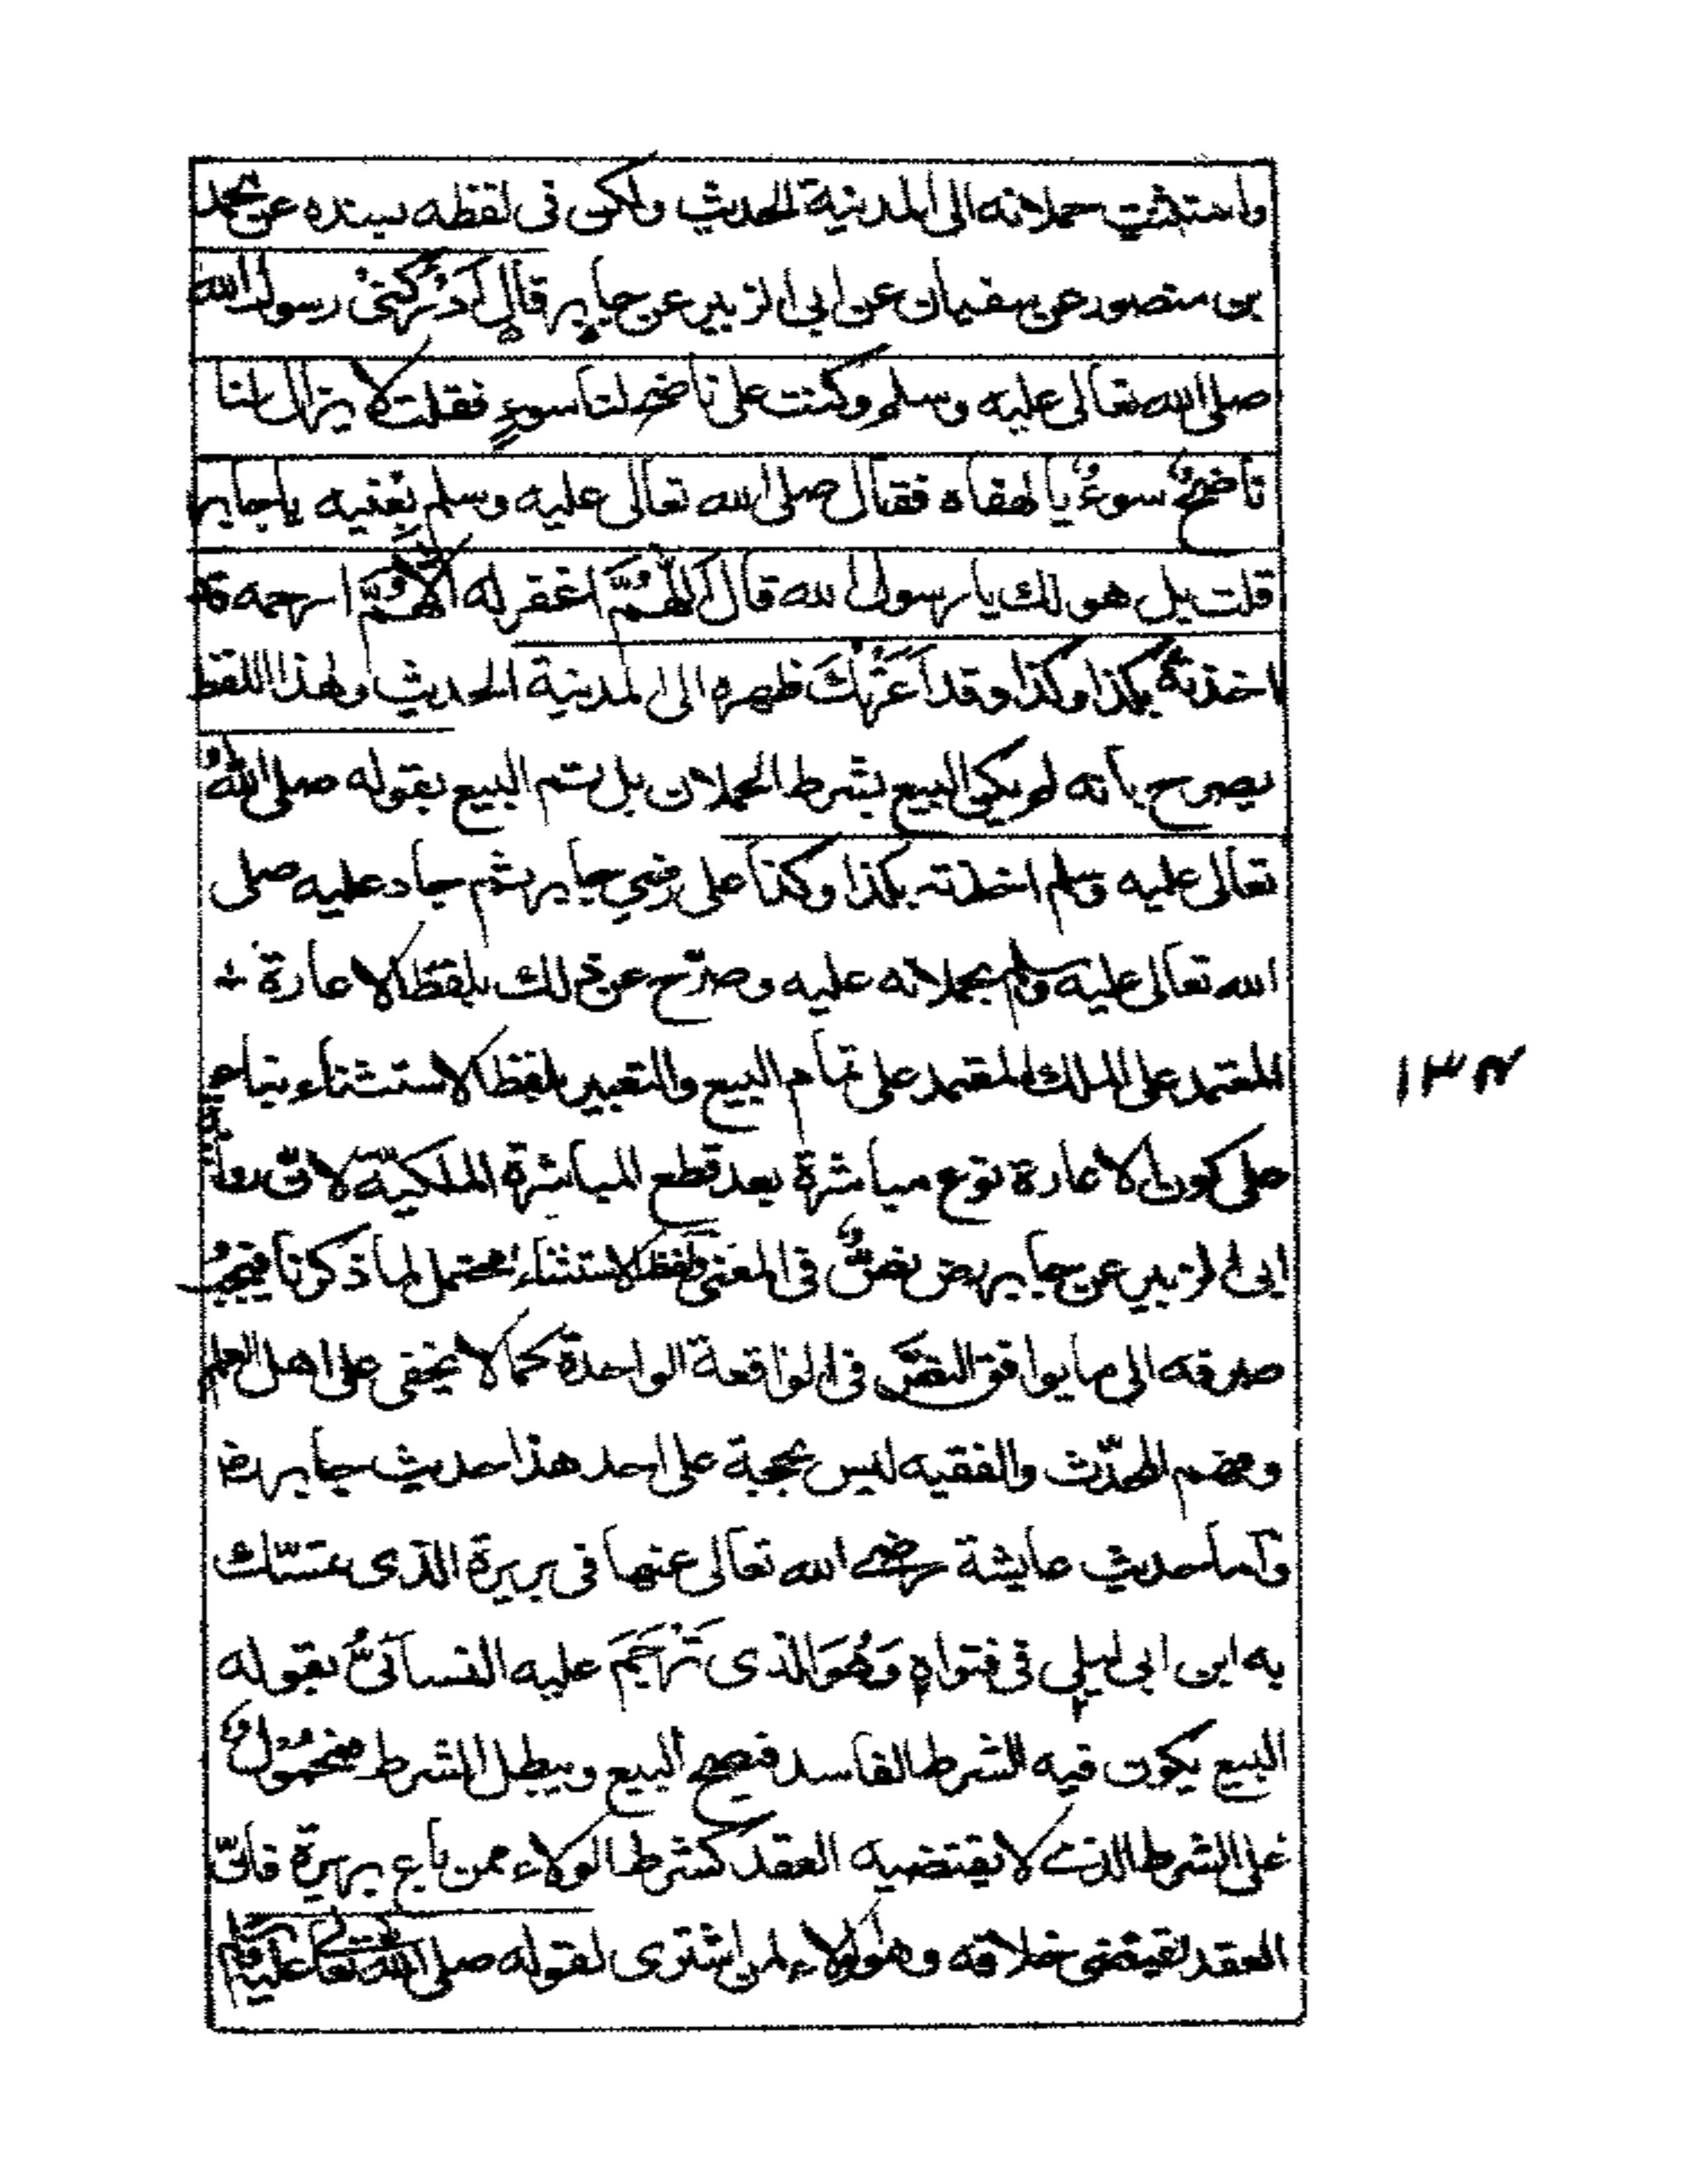 واستثنيت حملانه الى المدينة الحديث ولكن في لفظه بسنده عن محمد
بن منصور عن سفيان عن ابي الزبير عن جابر قال ادركني رسول الله
صلى الله تعالى عليه وسلم وكنت على ناضح لنا سوءٍ فقلت لا يزال لنا
ناضحُ سوءٍ يا لهفاه فقال صلى الله تعالى عليه وسلم بِعْنيه يا جابر
قلت بل هو لك يا رسول الله قال اللّٰهُمَّ اغفر له اللّٰهُمَّ ارحمه قد
اخذتهُ بكذا وكذا وقد اَعَرْتُكَ ظهره الى المدينة الحديث ولهذا اللفظ
يصرح بانه لم يكن البيع بشرط الحملان بل تم البيع بقوله صلى اللهُ
تعالى عليه وسلم اخذته بكذا وكذا على رضي جابر ثم جاد عليه صلى
الله تعالى عليه وسلم بحملانه عليه وصرّح عن ذلك بلفظ الاعارة
المعتمد على الملك المعتمد على تمام البيع والتعبير بلفظ الاستثناء بناء
على كون الاعارة نوع مباشرة بعد قطع المباشرة الملكيّة لانّ
ابي الزبير عن جابر رض نصٌّ في المعنى ولفظ الاستثناء محتمل لما ذكرنا فيجبُ
صرفه الى ما يوافق النصّ في الواقعة الواحدة كما لا يخفى على اهل العلم
وفهم المحدّث والفقيه ليس بحجة على احد هذا حديث جابر رض
وَاما حديث عايشة رضي الله تعالى عنها في بريرة الذى تمسّك
به ابن ابي ليلى في فتواه وَهُوَ الذى تَرْجَمَ عليه النسآئىُّ بقوله
البيع يكون فيه الشرط الفاسد فيصح البيع ويبطل الشرط فمحمُولٌ
على الشرط الذے لا يقتضيه العقد كشرط الولاء ممن باع بريرة فانّ
العقد يقتضى خلافه وهو الولاء لمن اشترى لقوله صلى الله تعالى عليه وسلم
١٣٤